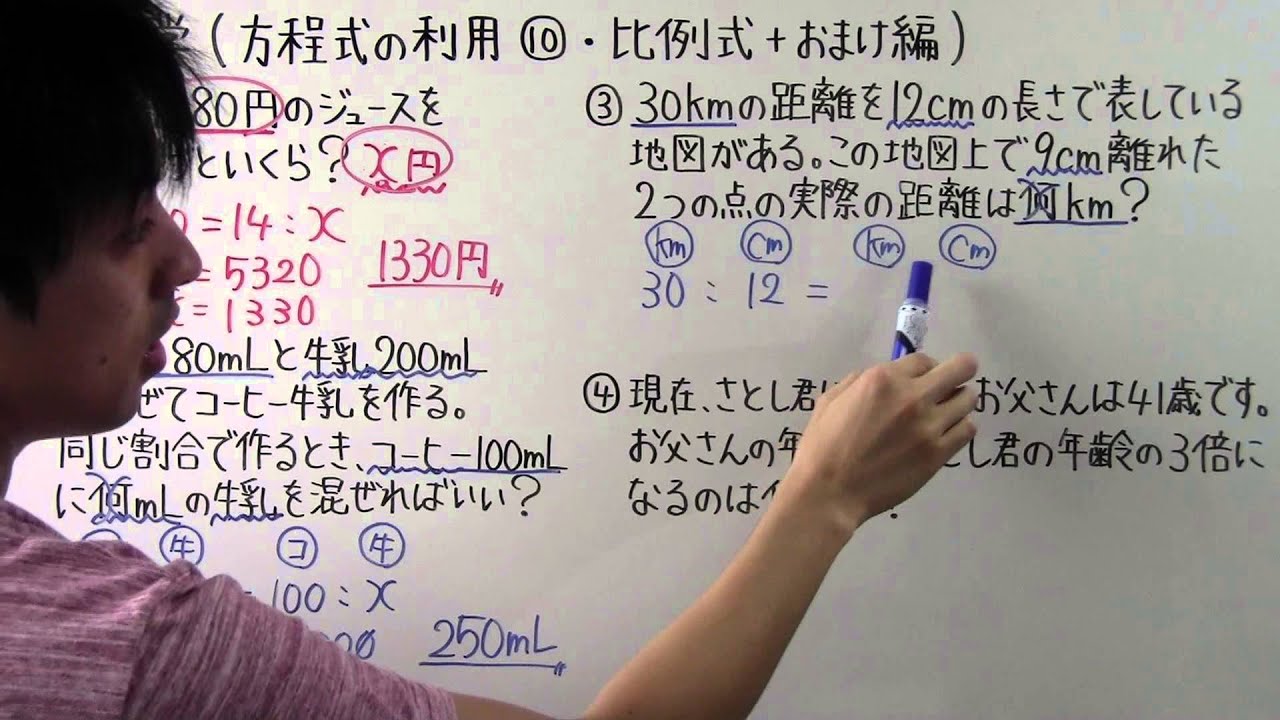 (方程式の利用 ⑩・比例式+おまけ編)
80円のジュースを
といくら? x円
=14:x
=5320
=1330
1330円
80mLと牛乳200mL
ぜてコーヒー牛乳を作る。
同じ割合で作るとき、コーヒー100mL
に何mLの牛乳を混ぜればいい?
牛 コ 牛
100:x
250mL
③ 30kmの距離を12cmの長さで表している
地図がある。この地図上で9cm離れた
2つの点の実際の距離は何km?
km cm km cm
30:12=
④ 現在、さとし君 お父さんは41歳です。
お父さんの年 し君の年齢の3倍に
なるのは ?